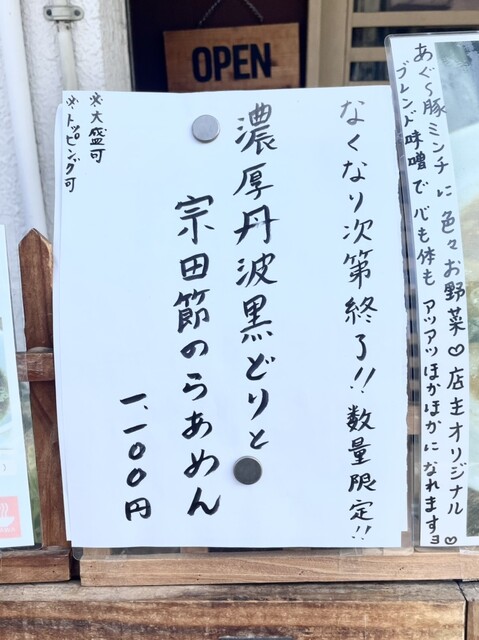 OPEN
なくなり次第終了!! 数量限定!!
濃厚丹波黒どりと
宗田節のらあめん
一、一〇〇円
※大盛可
※トッピング可
あぐ〜豚ミンチに色々お野菜♡店主オリジナル♡
ブレンド味噌で心も体もアツアツほかほかになれますヨ